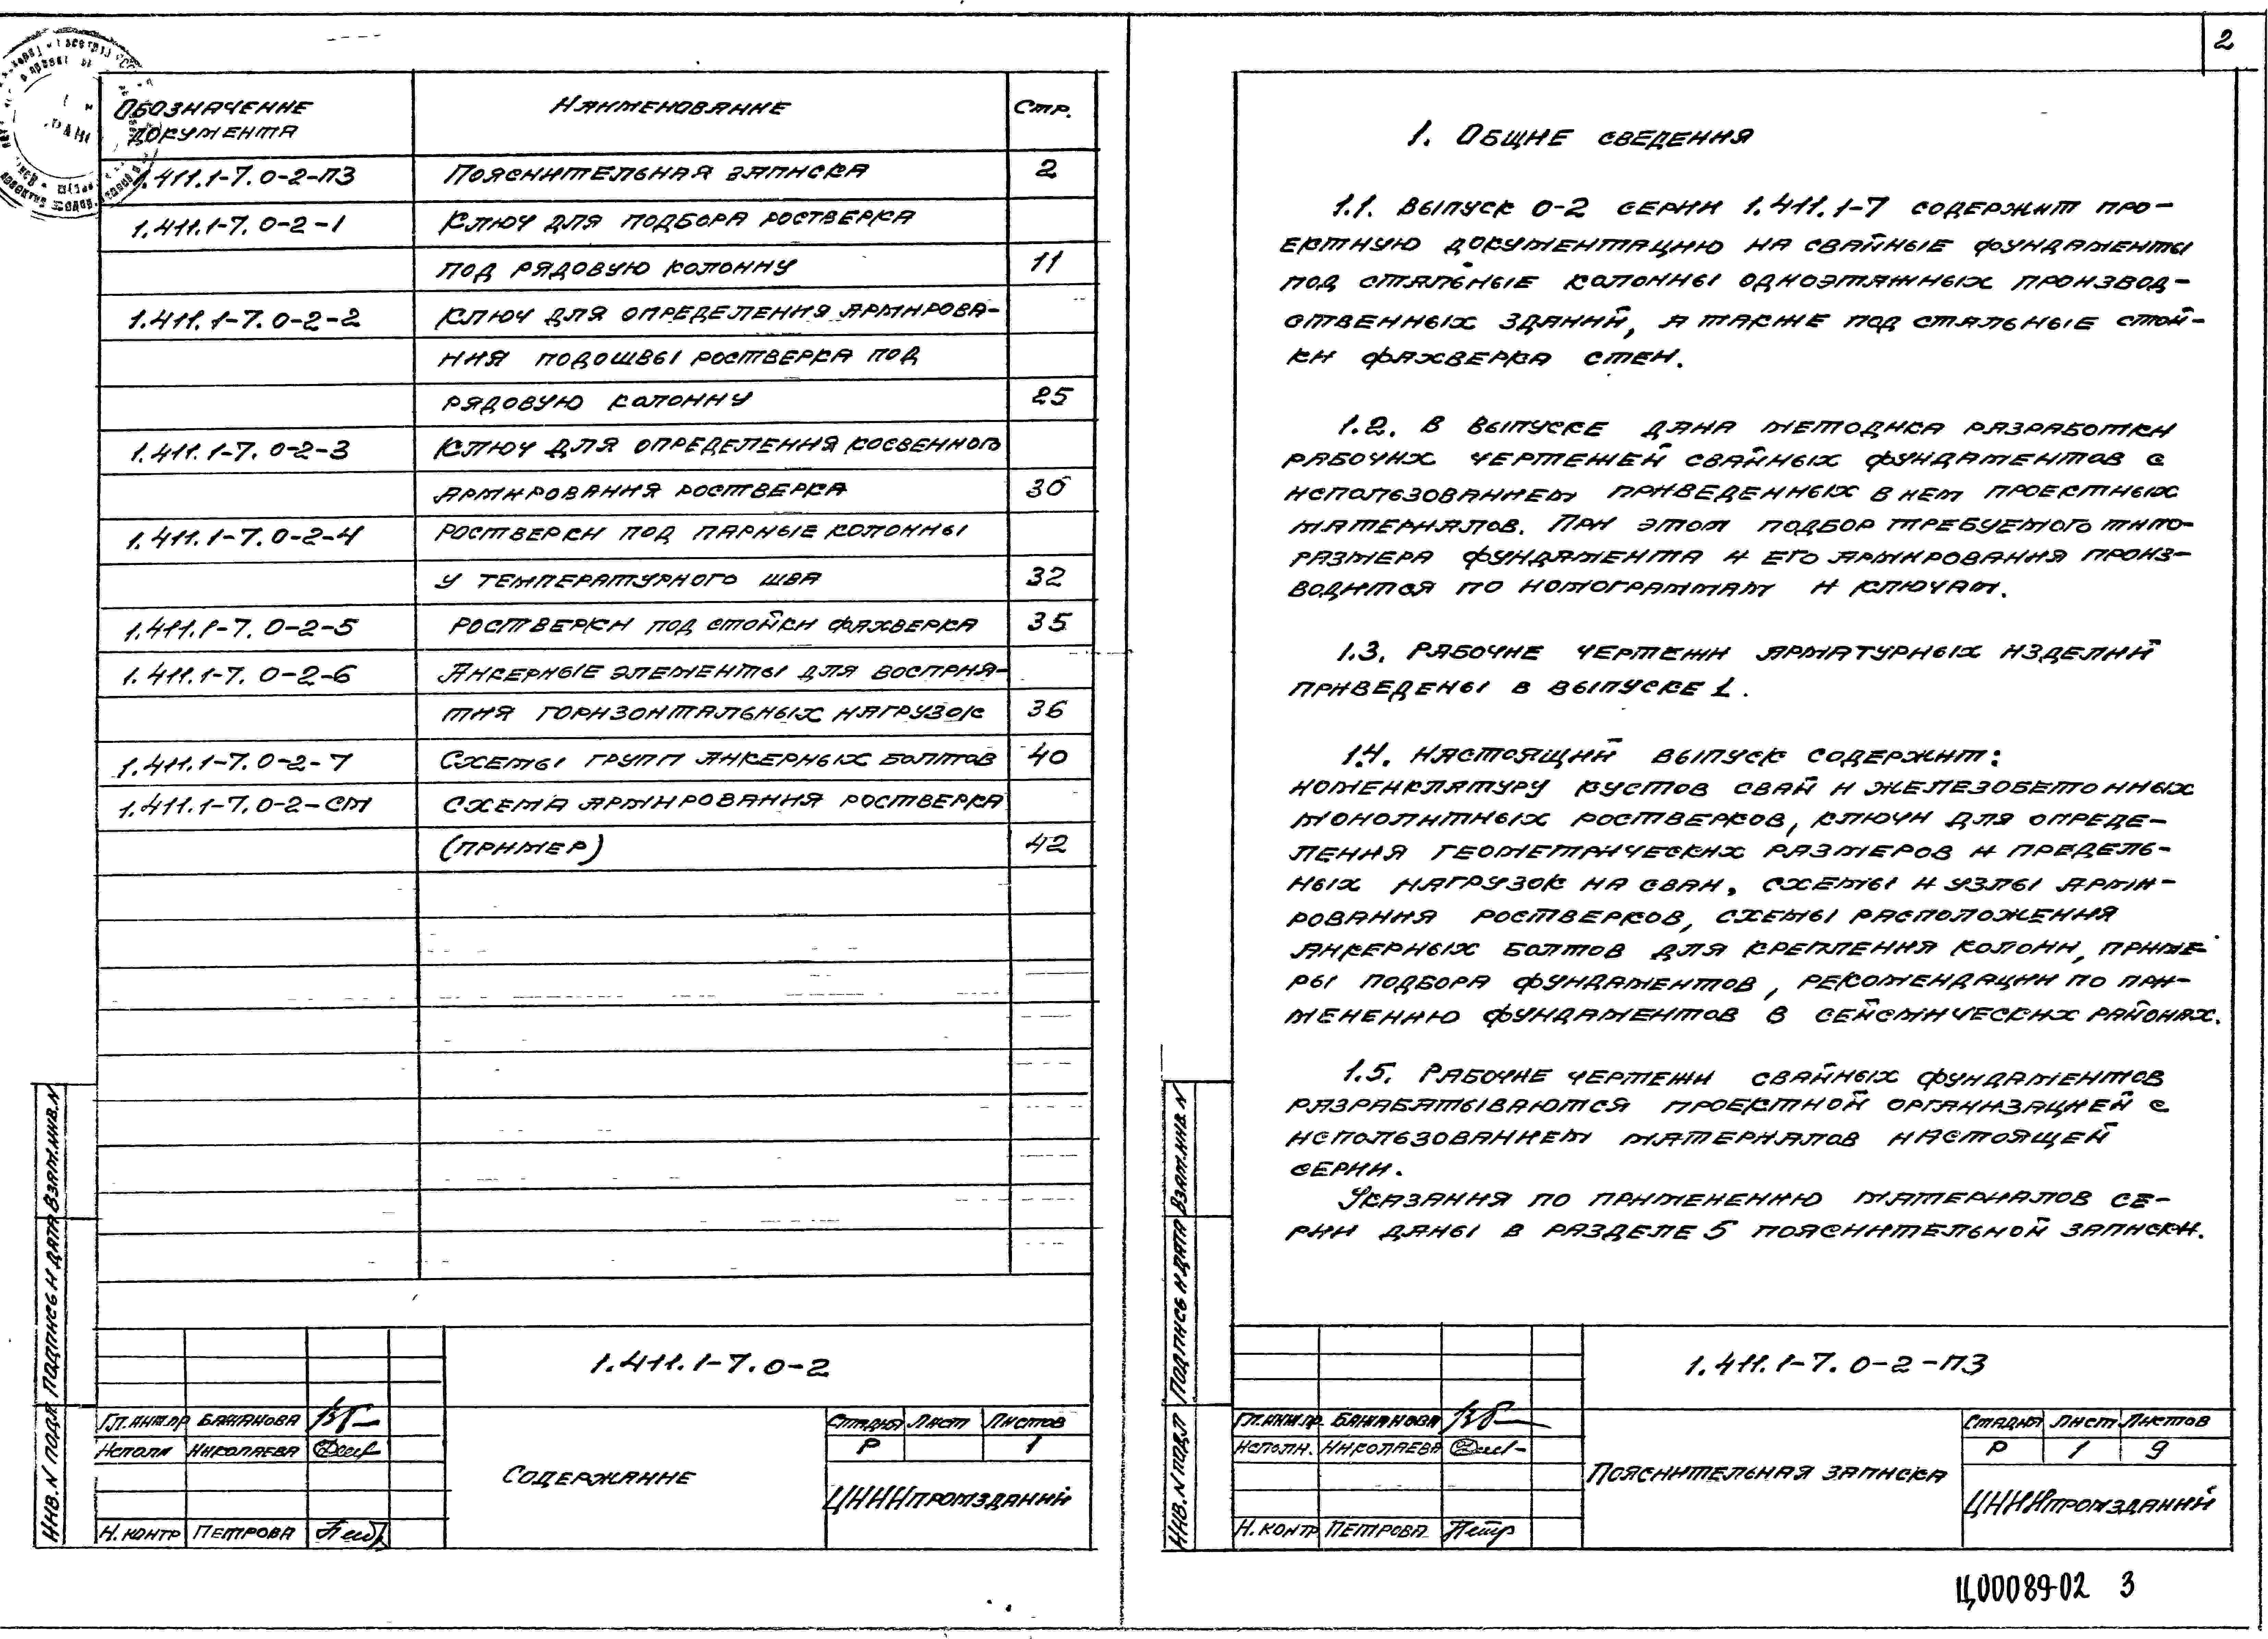 Обозначение документа Наименование Стр.
1.411.1-7.0-2-ПЗ Пояснительная записка 2
1.411.1-7.0-2-1 Ключ для подбора ростверка
под рядовую колонну 11
1.411.1-7.0-2-2 Ключ для определения армирова-
ния подошвы ростверка под
рядовую колонну 25
1.411.1-7.0-2-3 Ключ для определения косвенного
армирования ростверка 30
1.411.1-7.0-2-4 Ростверки под парные колонны
у температурного шва 32
1.411.1-7.0-2-5 Ростверки под стойки фахверка 35
1.411.1-7.0-2-6 Анкерные элементы для восприя-
тия горизонтальных нагрузок 36
1.411.1-7.0-2-7 Схемы групп анкерных болтов 40
1.411.1-7.0-2-СМ Схема армирования ростверка
(пример) 42
Инв. N подл. Подпись и дата Взам.инв.N
1.411.1-7.0-2
Гл.инж.пр Бажанова
Исполн Николаева
Н.контр Петрова
Содержание
Стадия Лист Листов
Р 1
ЦНИИпромзданий
2
1. Общие сведения
1.1. Выпуск 0-2 серии 1.411.1-7 содержит про-
ектную документацию на свайные фундаменты
под стальные колонны одноэтажных производ-
ственных зданий, а также под стальные стой-
ки фахверка стен.
1.2. В выпуске дана методика разработки
рабочих чертежей свайных фундаментов с
использованием приведенных в нем проектных
материалов. При этом подбор требуемого типо-
размера фундамента и его армирования произ-
водится по номограммам и ключам.
1.3. Рабочие чертежи арматурных изделий
приведены в выпуске 1.
1.4. Настоящий выпуск содержит:
номенклатуру кустов свай и железобетонных
монолитных ростверков, ключи для опреде-
ления геометрических размеров и предель-
ных нагрузок на сваи, схемы и узлы арми-
рования ростверков, схемы расположения
анкерных болтов для крепления колонн, приме-
ры подбора фундаментов, рекомендации по при-
менению фундаментов в сейсмических районах.
1.5. Рабочие чертежи свайных фундаментов
разрабатываются проектной организацией с
использованием материалов настоящей
серии.
Указания по применению материалов се-
рии даны в разделе 5 пояснительной записки.
Инв. N подл Подпись и дата Взам.инв. N
1.411.1-7.0-2-ПЗ
Гл.инж.пр. Бажанова
Исполн. Николаева
Н.контр Петрова
Пояснительная записка
Стадия Лист Листов
Р 1 9
ЦНИИпромзданий
Ц00089-02 3